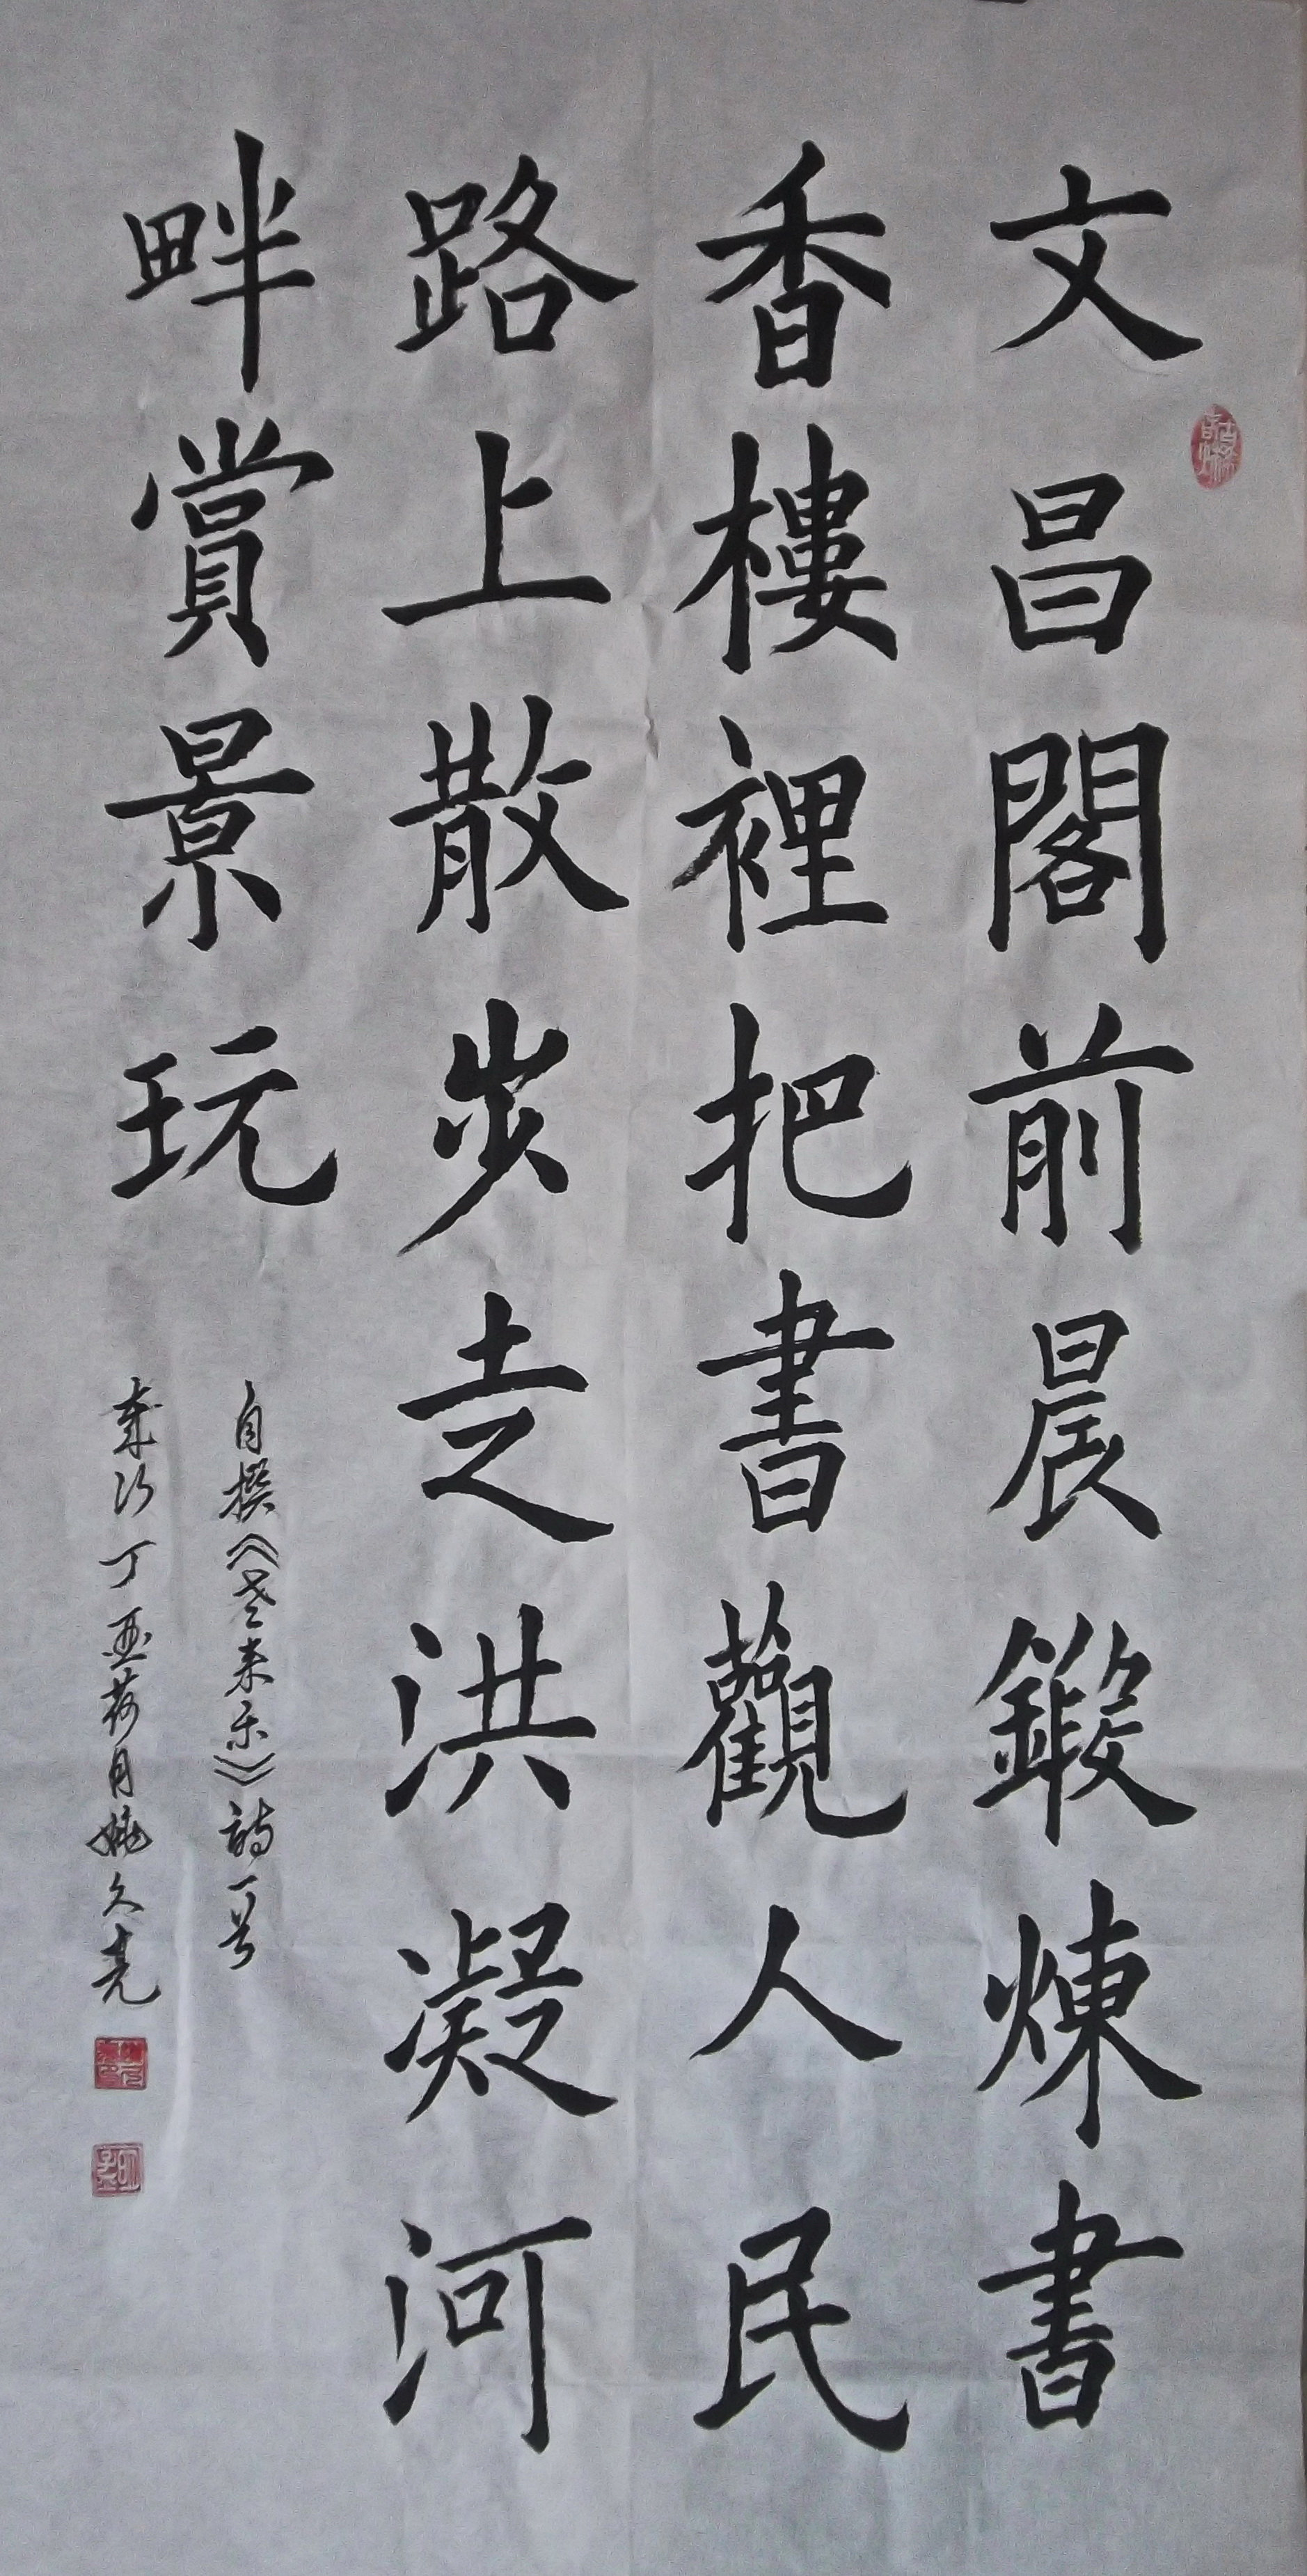 文昌閣前晨鍛煉書
香樓裡把書觀人民
路上散步走洪凝河
畔賞景玩
自撰《老来乐》詩一首
歲次丁亚荷月姚久亮